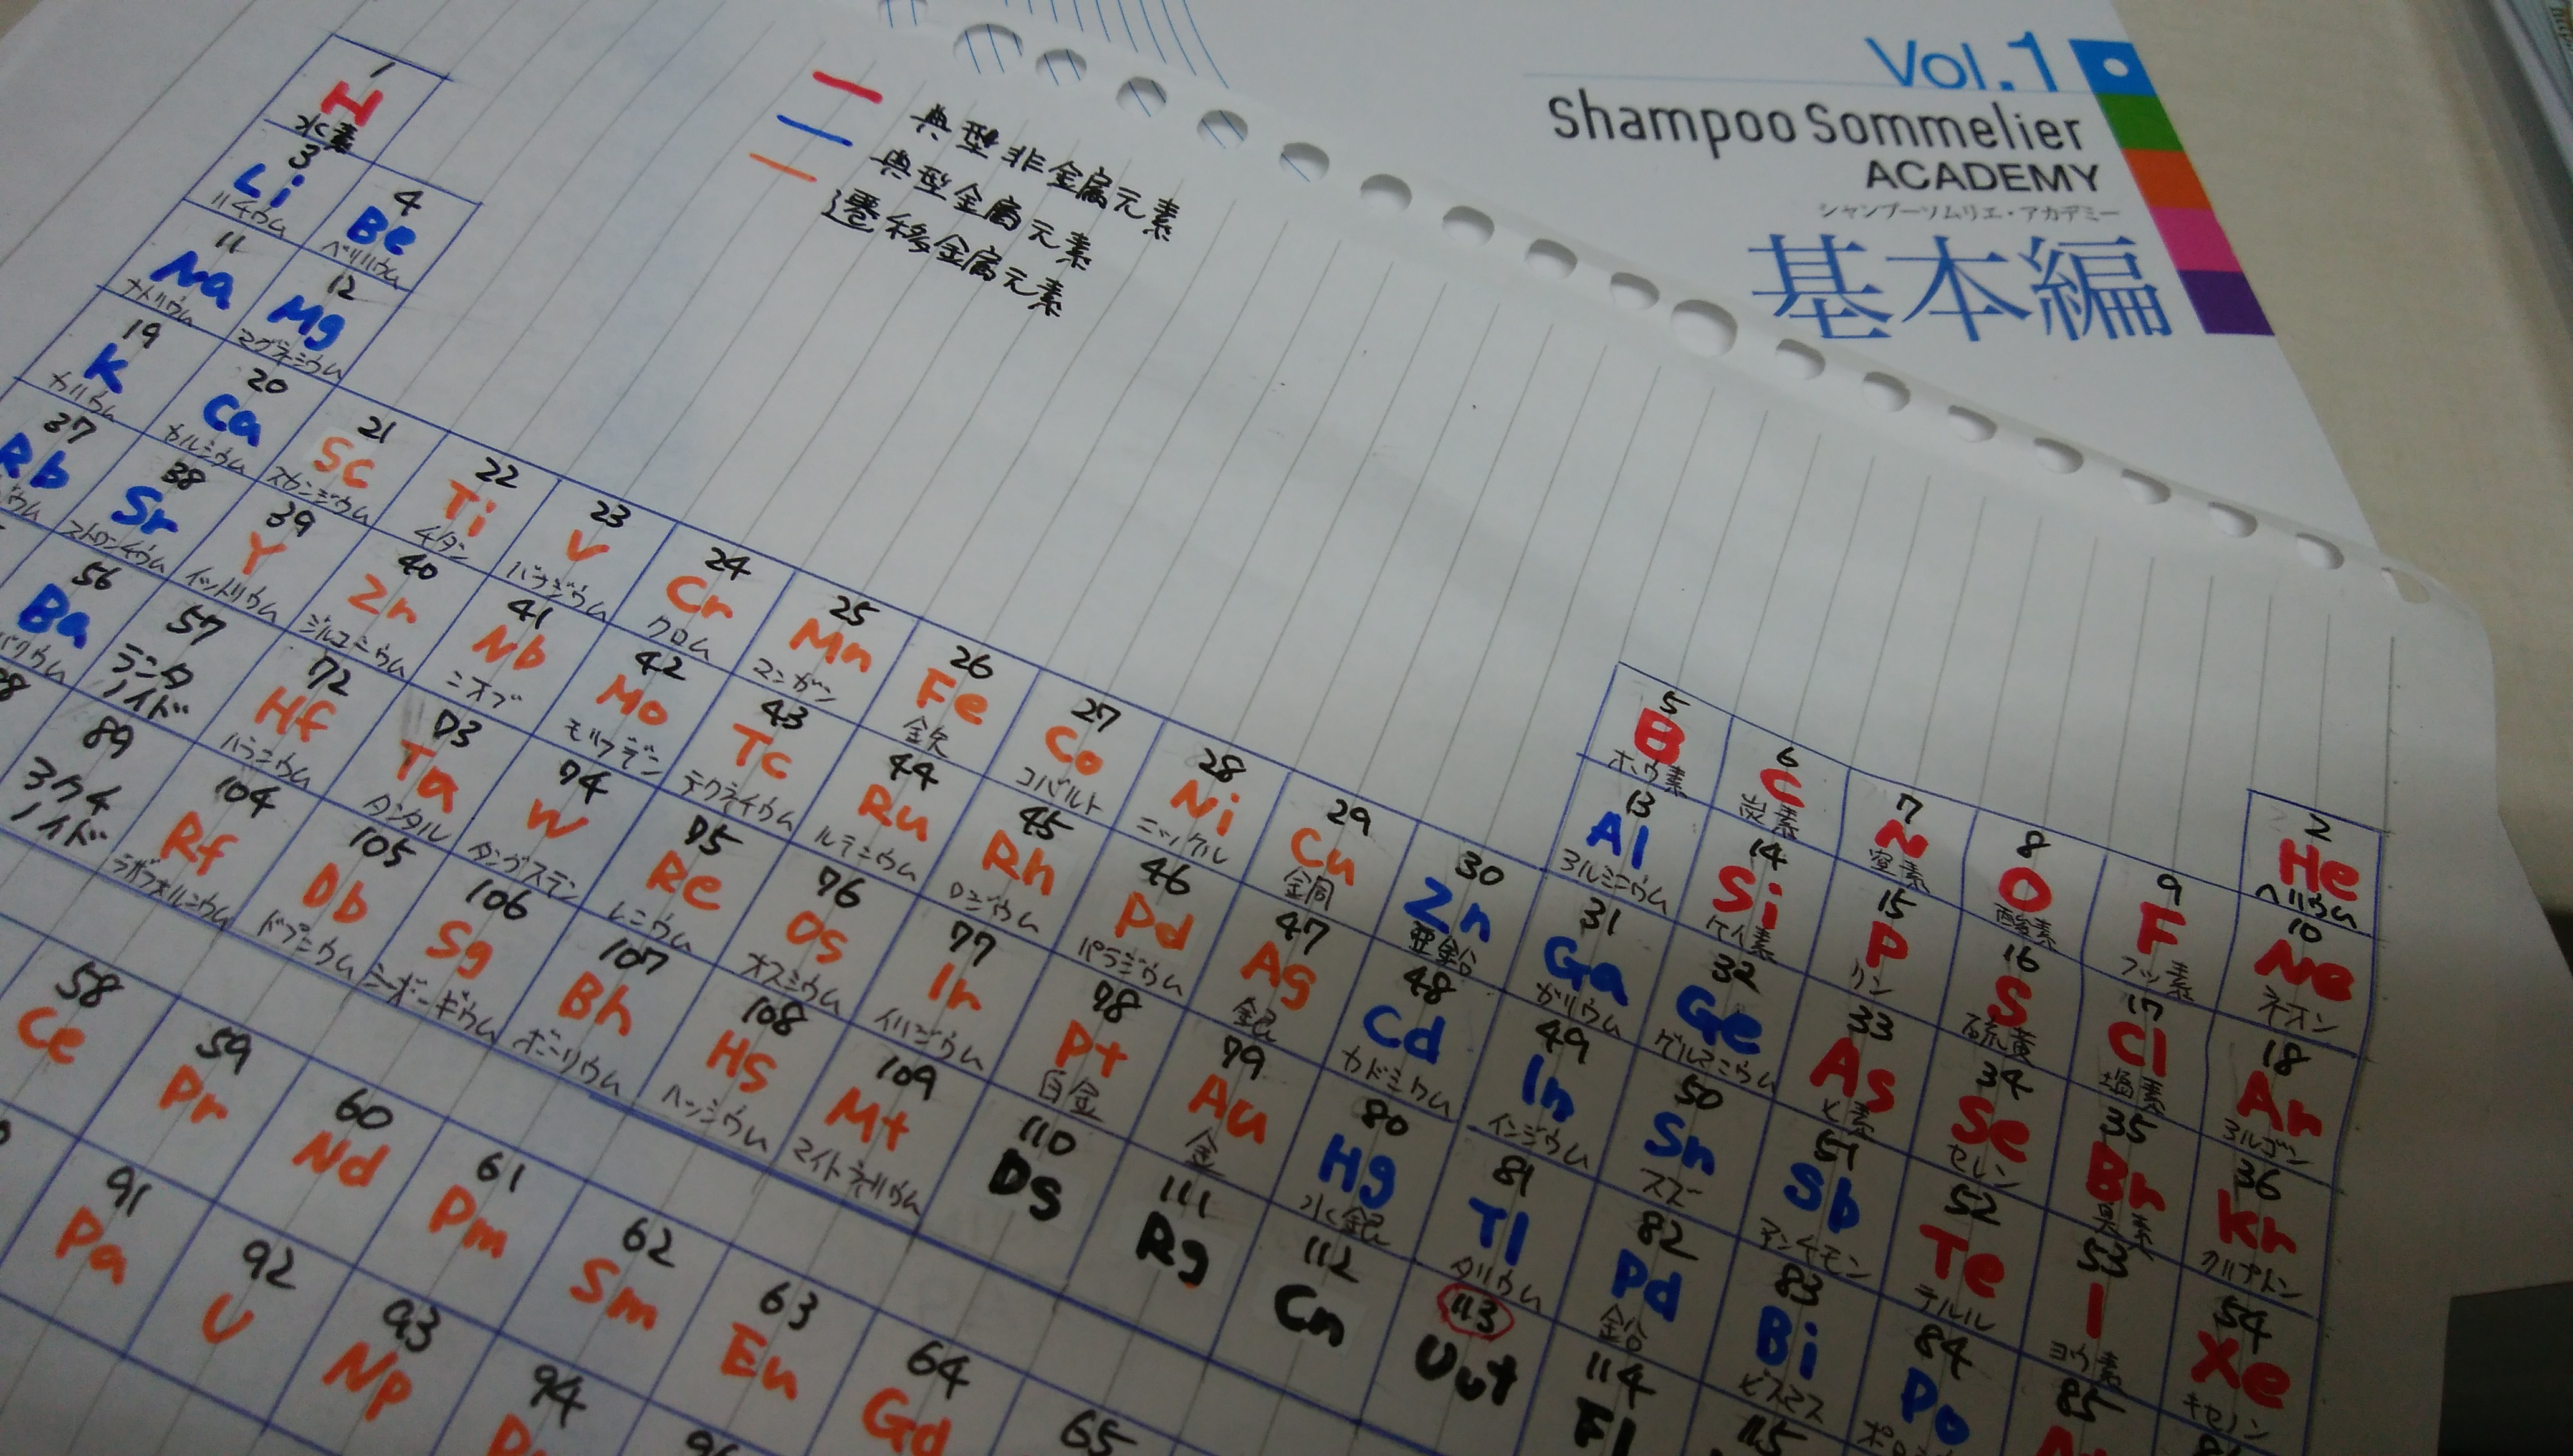 Vol.1
Shampoo Sommelier
ACADEMY
シャンプーソムリエ・アカデミー
基本編
典型非金属元素
典型金属元素
遷移金属元素
1
H
水素
3 4
Li Be
リチウム ベリリウム
11 12
Na Mg
ナトリウム マグネシウム
19 20 21 22 23 24 25 26 27 28 29 30 31 32 33 34 35 36
K Ca Sc Ti V Cr Mn Fe Co Ni Cu Zn Ga Ge As Se Br Kr
カリウム カルシウム スカンジウム チタン バナジウム クロム マンガン 鉄 コバルト ニッケル 銅 亜鉛 ガリウム ゲルマニウム ヒ素 セレン 臭素 クリプトン
5 6 7 8 9 2
B C N O F He
ホウ素 炭素 窒素 酸素 フッ素 ヘリウム
13 14 15 16 17 10
Al Si P S Cl Ne
アルミニウム ケイ素 リン 硫黄 塩素 ネオン
18
Ar
アルゴン
37 38 39 40 41 42 43 44 45 46 47 48 49 50 51 52 53 54
Rb Sr Y Zr Nb Mo Tc Ru Rh Pd Ag Cd In Sn Sb Te I Xe
ストロンチウム イットリウム ジルコニウム ニオブ モリブデン テクネチウム ルテニウム ロジウム パラジウム 銀 カドミウム インジウム スズ アンチモン テルル ヨウ素 キセノン
56 57 72 73 74 75 76 77 78 79 80 81 82 83 84 85
Ba ランタノイド Hf Ta W Re Os Ir Pt Au Hg Tl Pd Bi Po
バリウム ハフニウム タンタル タングステン レニウム オスミウム イリジウム 白金 金 水銀 タリウム 鉛 ビスマス
89 104 105 106 107 108 109 110 111 112 113 114 115
アクチノイド Rf Db Sg Bh Hs Mt Ds Rg Cn Uut Fl
ラザフォルニウム ドブニウム シーボーギウム ボーリウム ハッシウム マイトネリウム
58 59 60 61 62 63 64 65
Ce Pr Nd Pm Sm Eu Gd
91 92 93 94
Pa U Np